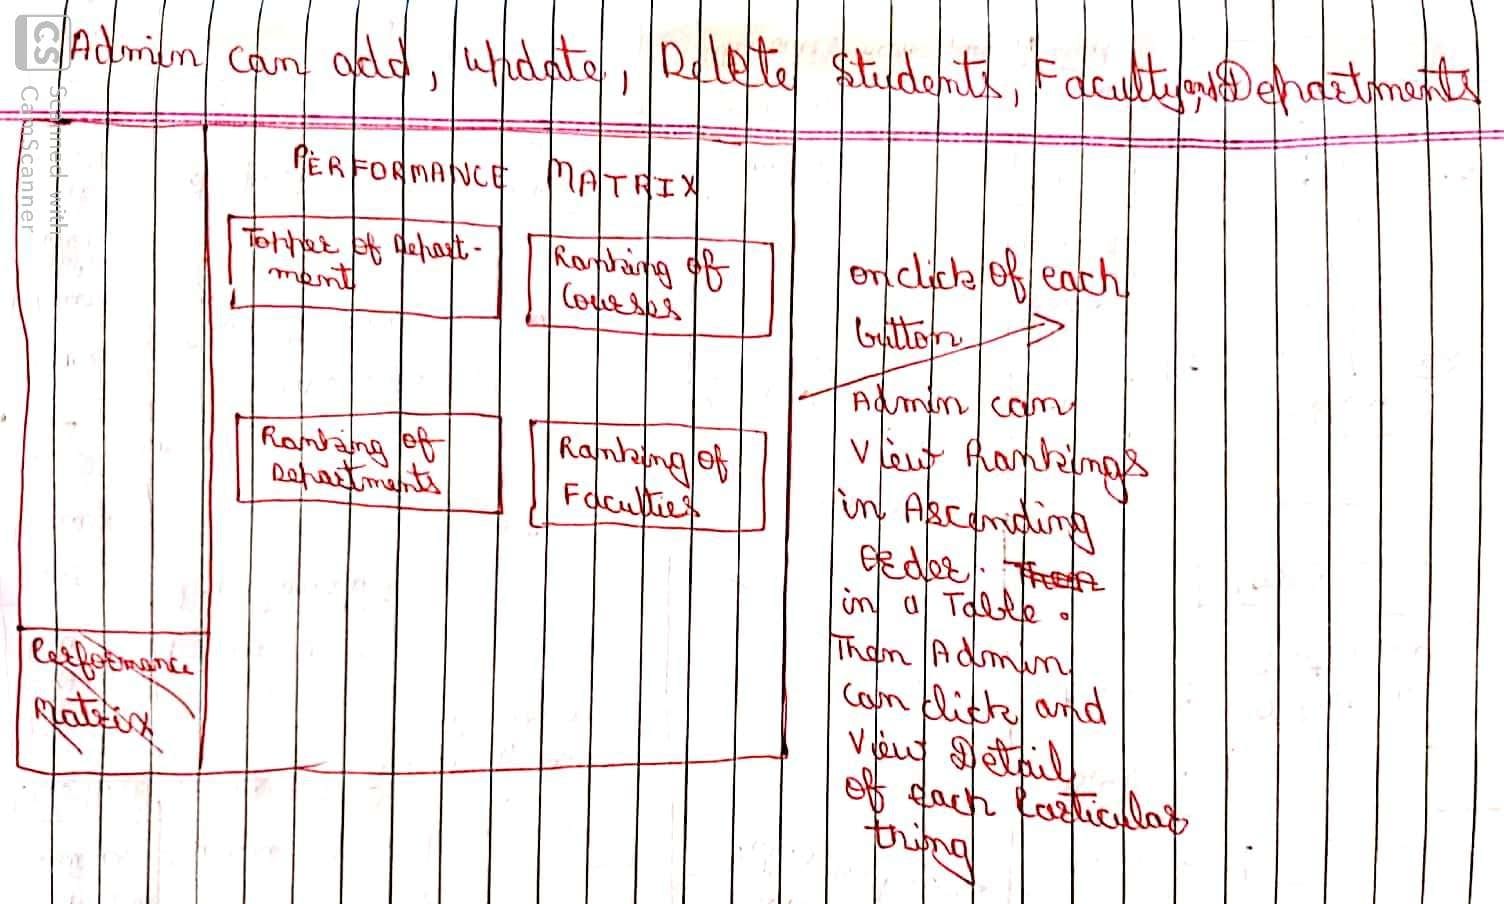 Admin can add, update, Delete Students, Faculty and Departments
PERFORMANCE MATRIX
Topper of Depart-
ment
Ranking of
Courses
Ranking of
Departments
Ranking of
Faculties
Performance
Matrix
on click of each
button
Admin can
View Rankings
in Ascending
Order.
in a Table.
Then Admin
can click and
View Detail
of each Particular
thing
CS
Scanned with
CamScanner